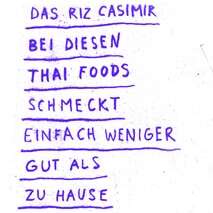 DAS RIZ CASIMIR
BEI DIESEN
THAI FOODS
SCHMECKT
EINFACH WENIGER
GUT ALS
ZU HAUSE